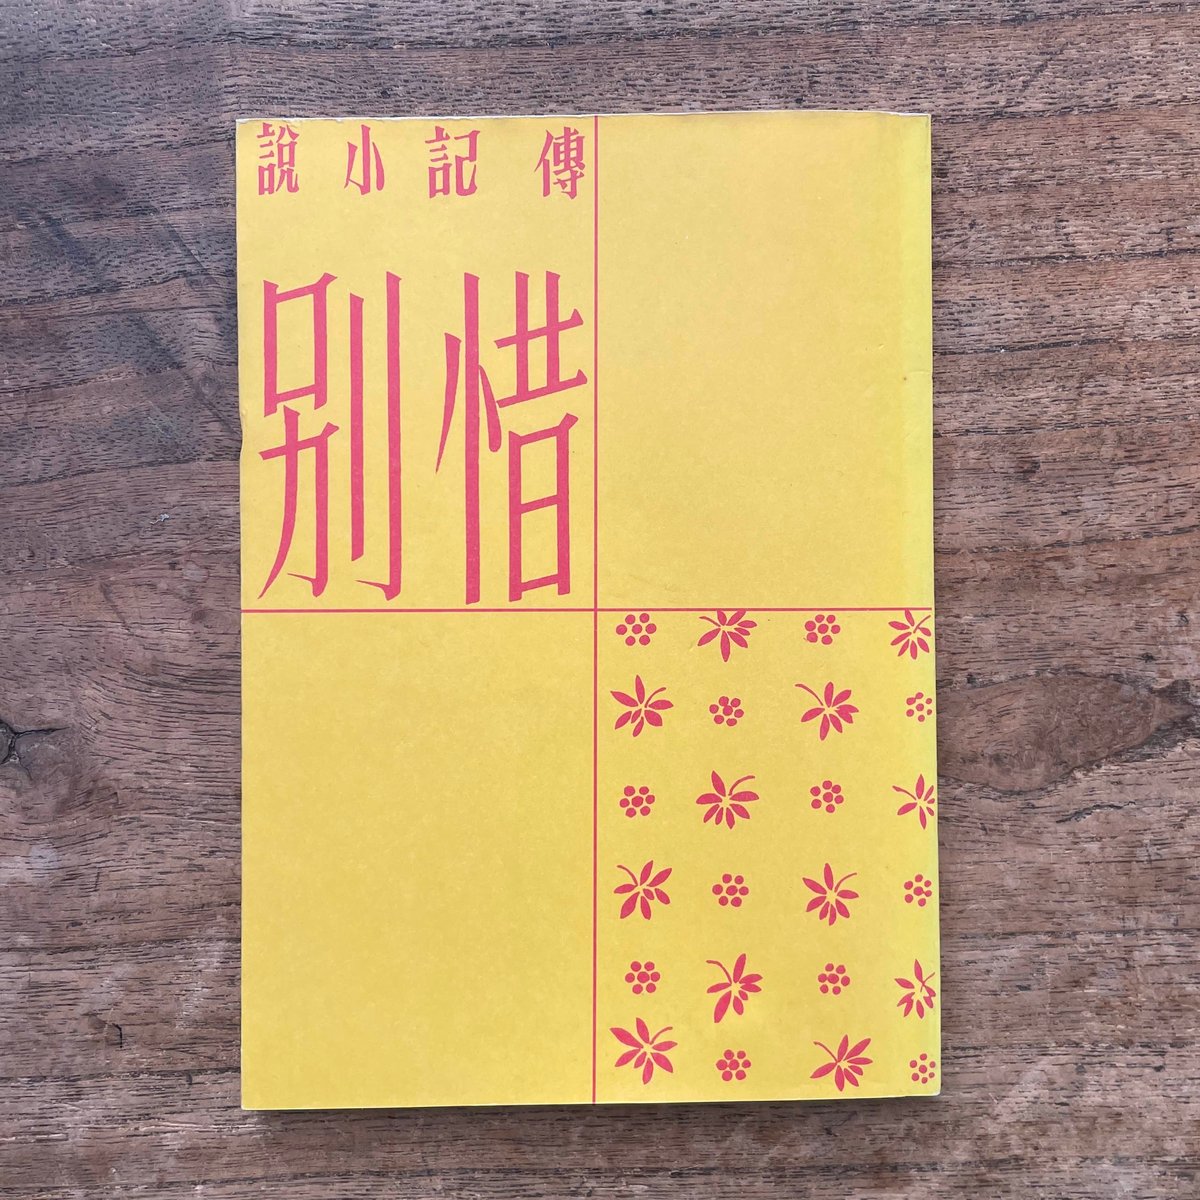 傳記小説
惜別